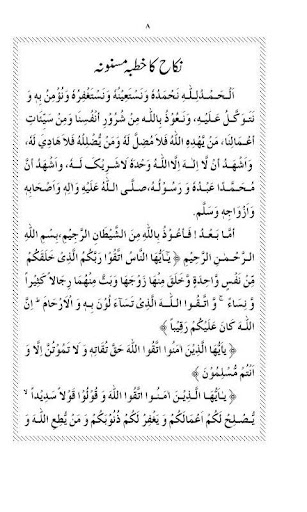 ۸
نکاح کا خطبہ مسنونہ
اَلْحَمْدُلِلّٰهِ نَحْمَدُهٗ وَنَسْتَعِيْنُهٗ وَنَسْتَغْفِرُهٗ وَنُؤْمِنُ بِهٖ وَ
نَتَوَكَّلُ عَلَيْهِ، وَنَعُوْذُ بِاللّٰهِ مِنْ شُرُوْرِ اَنْفُسِنَا وَمِنْ سَيِّئَاتِ
اَعْمَالِنَا، مَنْ يَّهْدِهِ اللّٰهُ فَلاَ مُضِلَّ لَهٗ وَمَنْ يُّضْلِلْهُ فَلاَ هَادِيَ لَهٗ،
وَاَشْهَدُ اَنْ لَّا اِلٰـهَ اِلَّااللّٰهُ وَحْدَهٗ لَاشَرِيْکَ لَـهٗ، وَاَشْهَدُ اَنَّ
مُحَمَّدًا عَبْدُهٗ وَ رَسُوْلُهٗ، صَلَّى اللّٰهُ عَلَيْهِ وَاٰلِهٖ وَاَصْحَابِهٖ
وَاَزْوَاجِهٖ وَسَلَّمَ.
اَمَّا بَعْدُ! فَاَعُوْذُ بِاللّٰهِ مِنَ الشَّيْطَانِ الرَّجِيْمِ، بِسْمِ اللّٰهِ
الرَّحْمٰنِ الرَّحِيْمِ ﴿ يٰٓاَيُّهَا النَّاسُ اتَّقُوْا رَبَّكُمُ الَّذِىْ خَلَقَكُمْ
مِّنْ نَّفْسٍ وَّاحِدَةٍ وَّخَلَقَ مِنْهَا زَوْجَهَا وَبَثَّ مِنْهُمَا رِجَالًا كَثِيْرًا
وَّ نِسَاءً ۚ وَ اتَّقُوا اللّٰهَ الَّذِىْ تَسَآءَ لُوْنَ بِـهٖ وَ الْاَرْحَامَ ؕ اِنَّ
اللّٰهَ كَانَ عَلَيْكُمْ رَقِيْبًا ﴾
﴿ يٰٓاَيُّهَا الَّذِيْنَ اٰمَنُوا اتَّقُوا اللّٰهَ حَقَّ تُقَاتِهٖ وَ لَا تَمُوْتُنَّ اِلَّا وَ
اَنْتُمْ مُّسْلِمُوْنَ ﴾
﴿ يٰٓاَيُّهَا الَّذِيْنَ اٰمَنُوا اتَّقُوا اللّٰهَ وَ قُوْلُوْا قَوْلًا سَدِيْدًا ۙ
يُّصْلِحْ لَكُمْ اَعْمَالَكُمْ وَ يَغْفِرْ لَكُمْ ذُنُوْبَكُمْ وَ مَنْ يُّطِعِ اللّٰهَ وَ